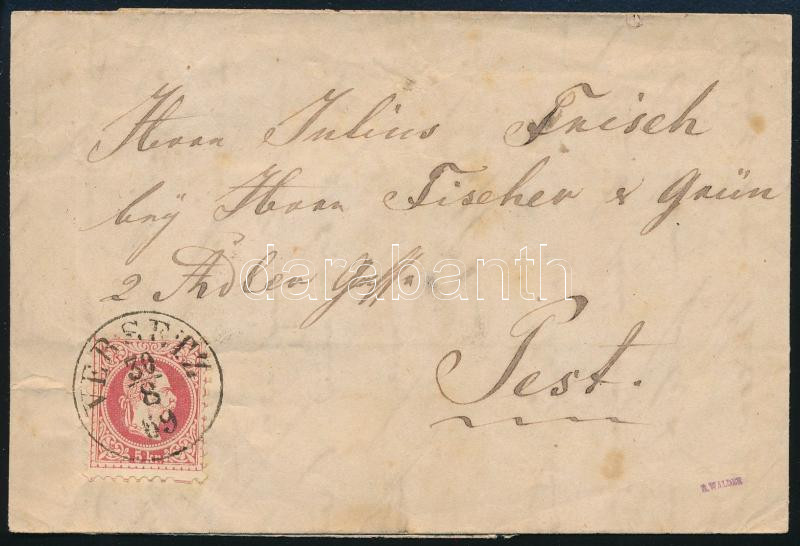 Herrn Julius Frisch
bey Herrn Fischer & Grün
2 Adler Gasse
Pest.
darabanth
VERSETZ
30
6
69
5 kr
R. WALDER